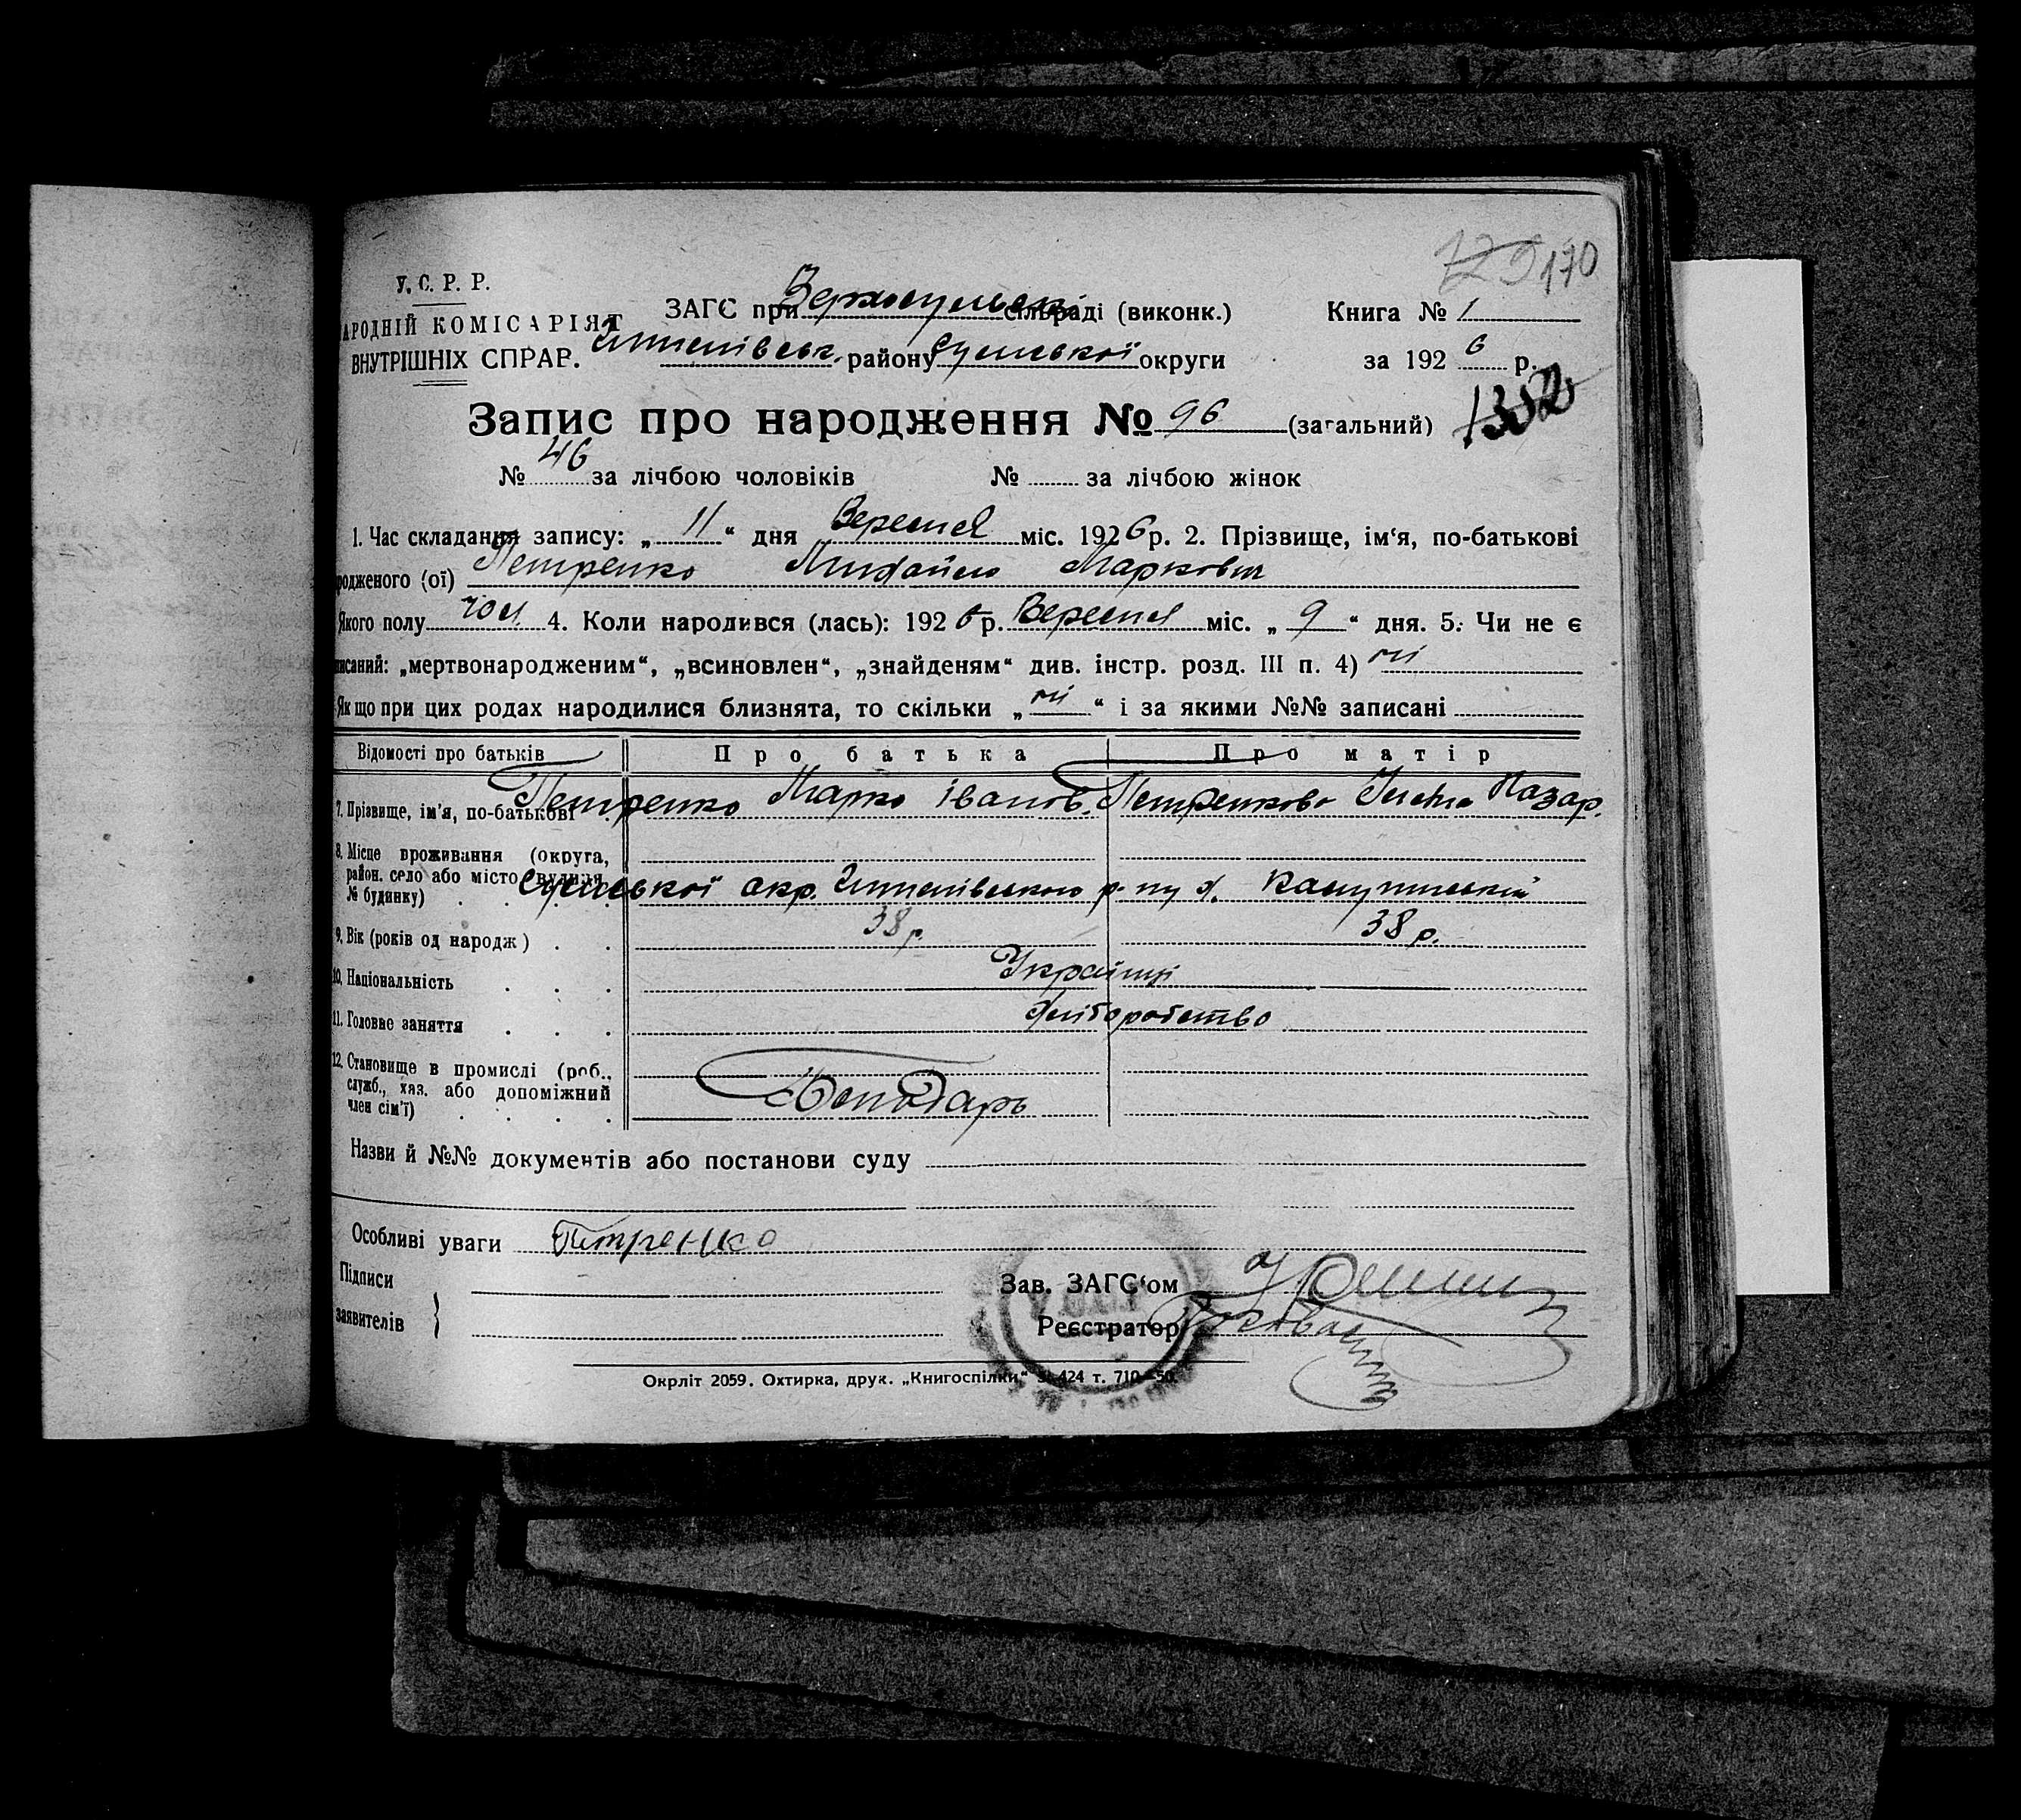 129 170
У. С. Р. Р.
НАРОДНІЙ КОМІСАРІЯТ
ВНУТРІШНІХ СПРАВ.
ЗАГС при Верхосульськ. сільраді (виконк.)
районy Сумської округи
Книга № 1
за 1926 р.
1382
Запис про народження № 96 (загальний)
№ 46 за лічбою чоловіків № за лічбою жінок
1. Час складання запису: „ 11 “ дня Вересня міс. 1926 р. 2. Прізвище, ім‘я, по-батькові
родженого (ої) Петренко Михайло Маркович
Якого полу чол. 4. Коли народився (лась): 1926 р. Вересня міс. „ 9 “ дня. 5. Чи не є
писаний: „мертвонародженим“, „всиновлен“, „знайденям“ див. інстр. розд. III п. 4) ні
Якщо при цих родах народилися близнята, то скільки „ ні “ і за якими №№ записані
Відомості про батьків Про батька Про матір
7. Прізвище, ім’я, по-батькові Петренко Марко Іванов. Петренкова Назар.
8. Місце проживання (округа, район. село або місто вулиця, № будинку) Сумської окр. р-ну х.
9. Вік (років од народж) 38 р. 38 р.
10. Національність Українці
11. Головне заняття Хліборобство
12. Становище в промислі (роб., служб., хаз. або допоміжний член сім’ї) Господарь
Назви й №№ документів або постанови суду
Особливі уваги Петренко
Підписи
заявителів
Зав. ЗАГС‘ом
Реєстратор
Окрліт 2059. Охтирка, друк. „Книгоспілки“ З. 424 т. 710—50.